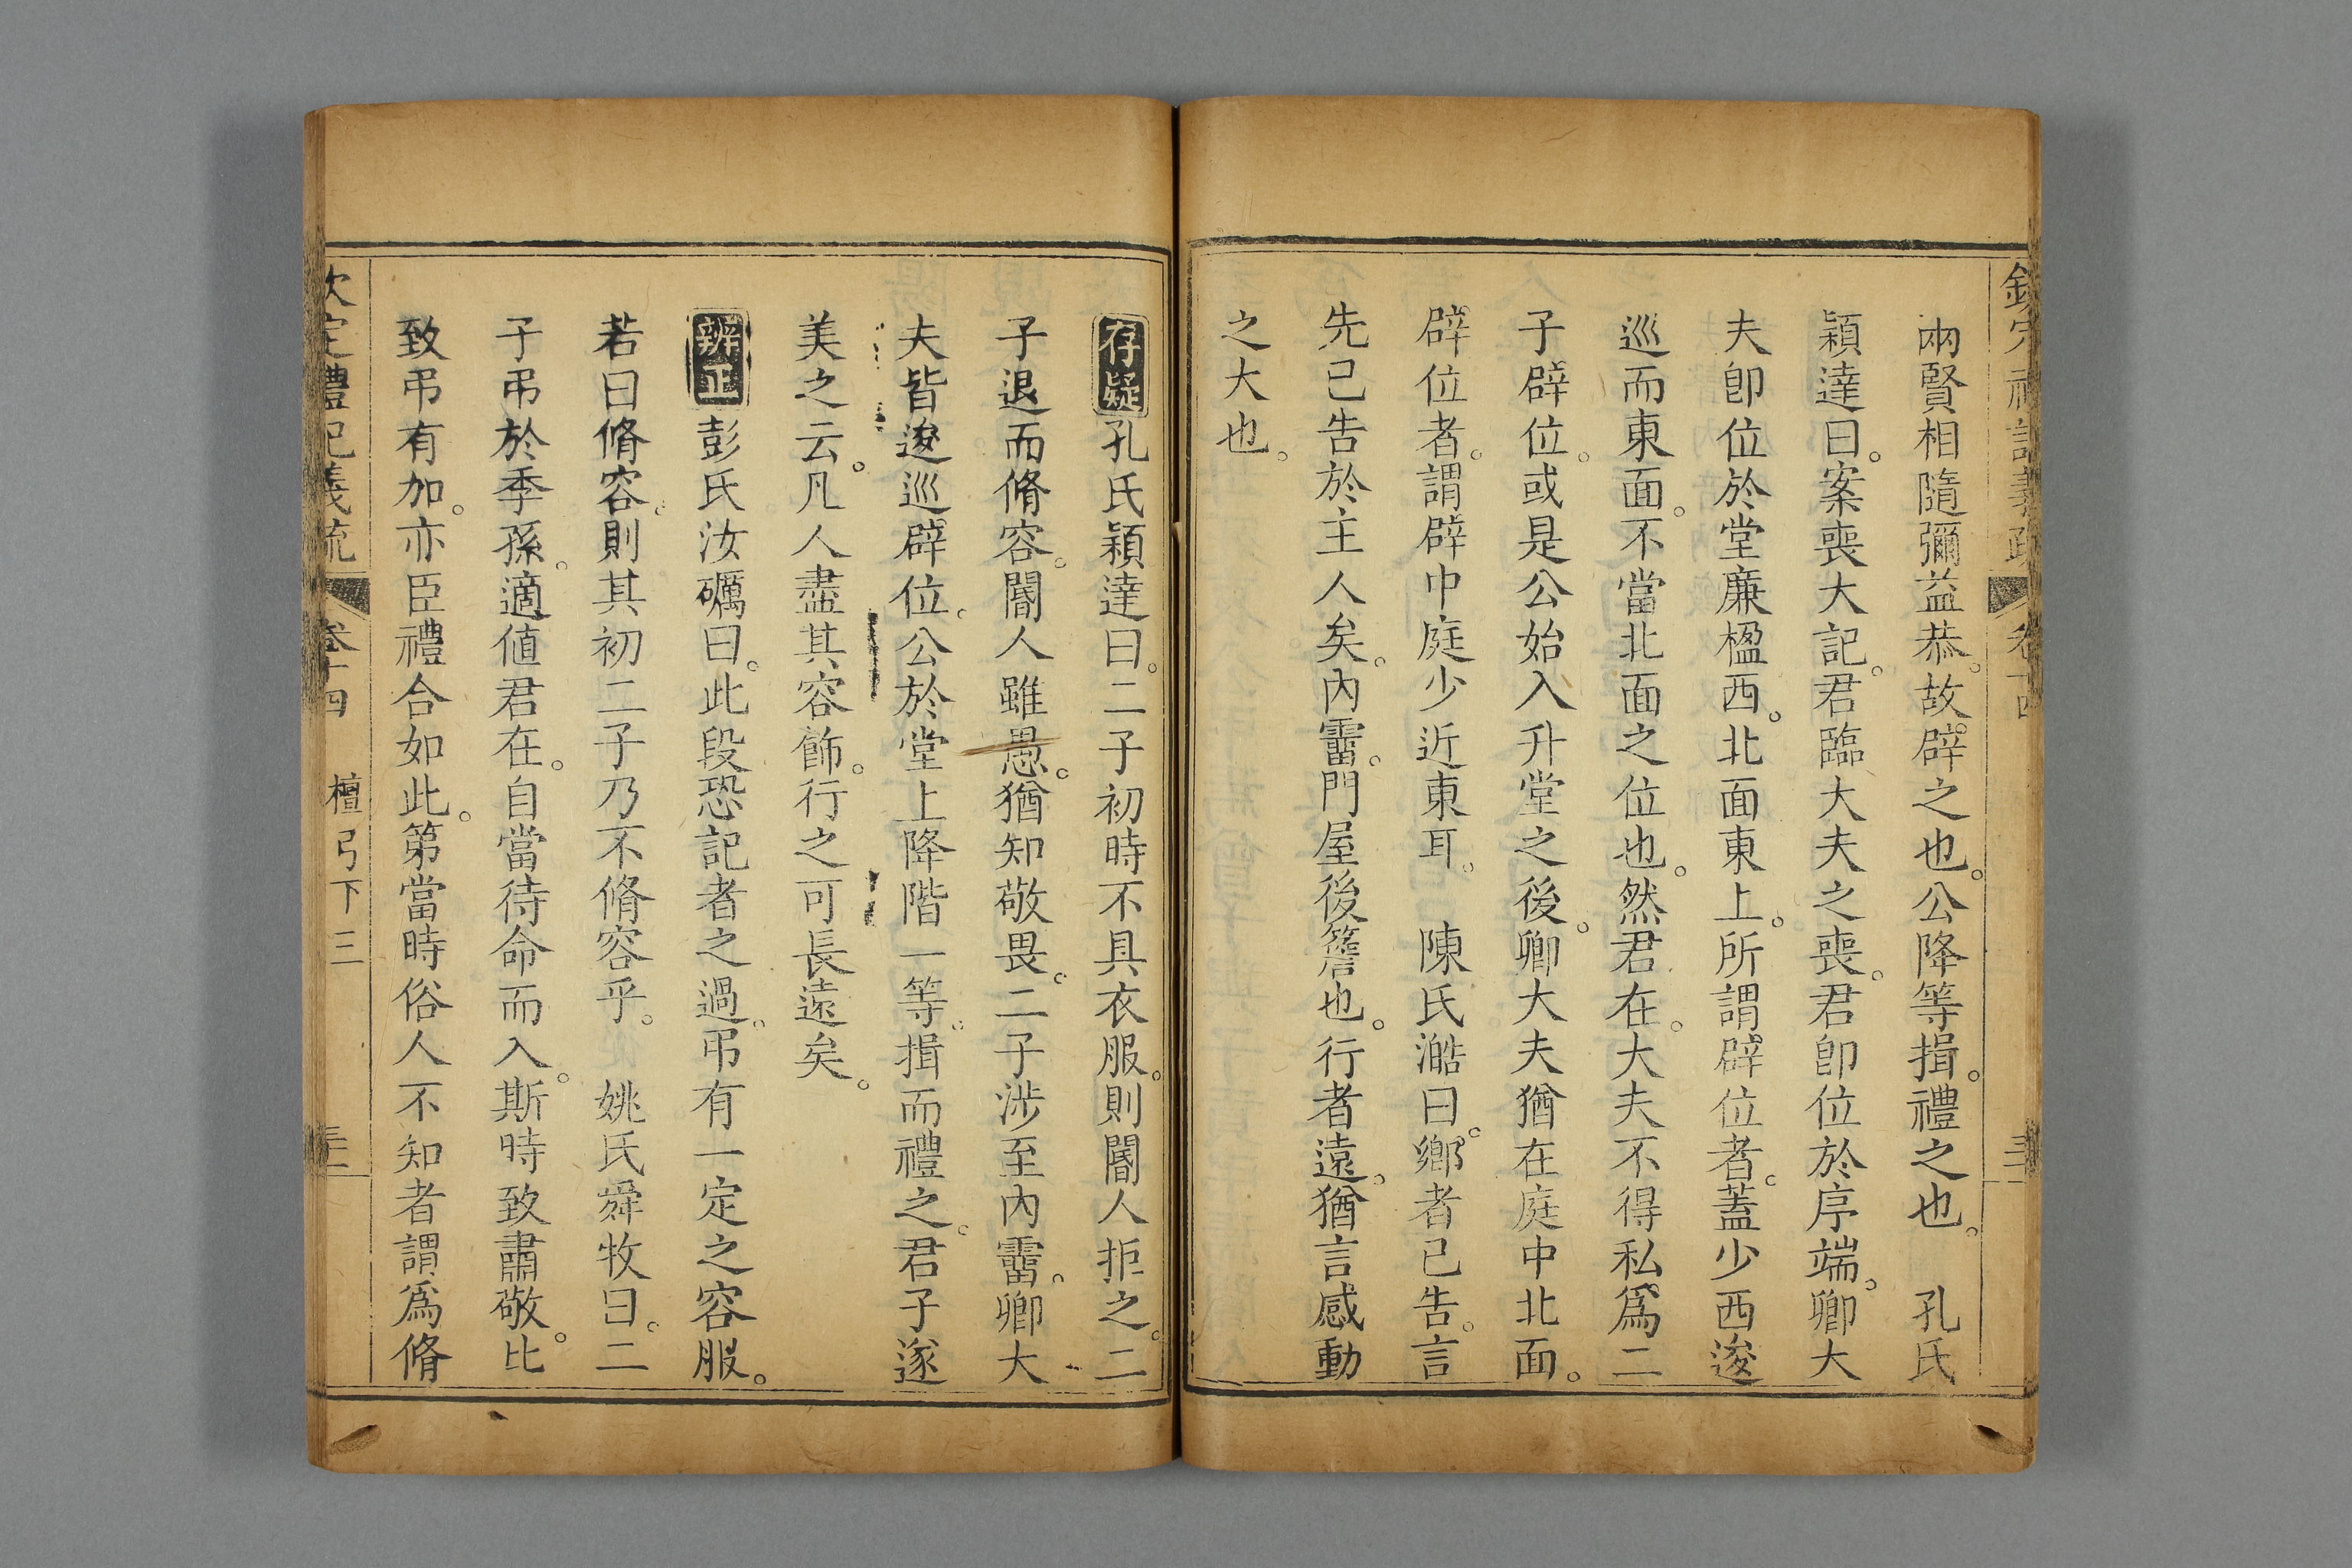 欽定禮記義疏 卷十四
兩賢相隨彌益恭。故辟之也。公降等揖。禮之也。 孔氏
穎達曰。案喪大記。君臨大夫之喪。君卽位於序端。卿大
夫卽位於堂廉楹西。北面東上。所謂辟位者。蓋少西逡
巡而東面。不當北面之位也。然君在。大夫不得私爲二
子辟位。或是公始入升堂之後。卿大夫猶在庭中北面。
辟位者。謂辟中庭少近東耳。 陳氏澔曰。鄉者已告。言
先已告於主人矣。內霤。門屋後簷也。行者遠。猶言感動
之大也。
存疑孔氏穎達曰。二子初時不具衣服。則閽人拒之。二
子退而脩容。閽人雖愚。猶知敬畏。二子涉至內霤。卿大
夫皆逡巡辟位。公於堂上降階一等。揖而禮之。君子遂
美之云。凡人盡其容飾。行之可長遠矣。
辨正彭氏汝礪曰。此段恐記者之過。弔有一定之容服。
若曰脩容。則其初二子乃不脩容乎。 姚氏舜牧曰。二
子弔於季孫。適値君在。自當待命而入。斯時致肅敬。比
致弔有加。亦臣禮合如此。第當時俗人不知者謂爲脩
欽定禮記義疏 卷十四 檀弓下三